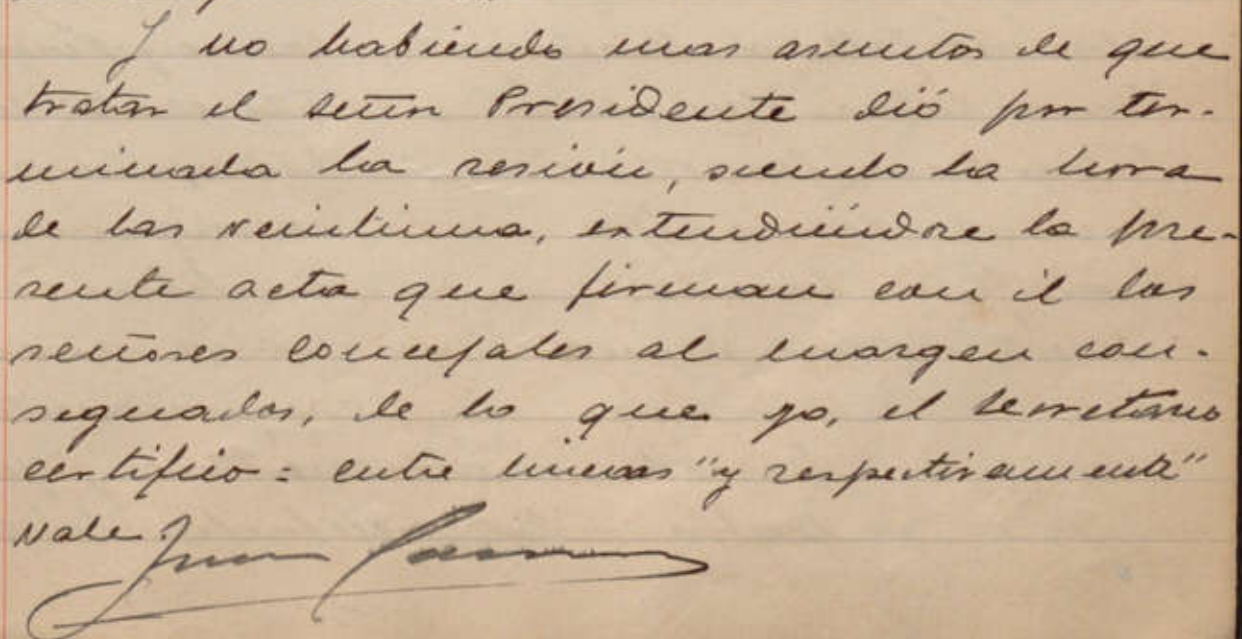 Y no habiendo mas asuntos de que
tratar el señor Presidente dió por ter-
minada la sesión, siendo la hora
de las veintiuna, extendiéndose la pre-
sente acta que firman con él los
señores concejales al margen con-
signados, de lo que yo, el secretario
certifico = entre lineas "y respectivamente"
vale.
Juan